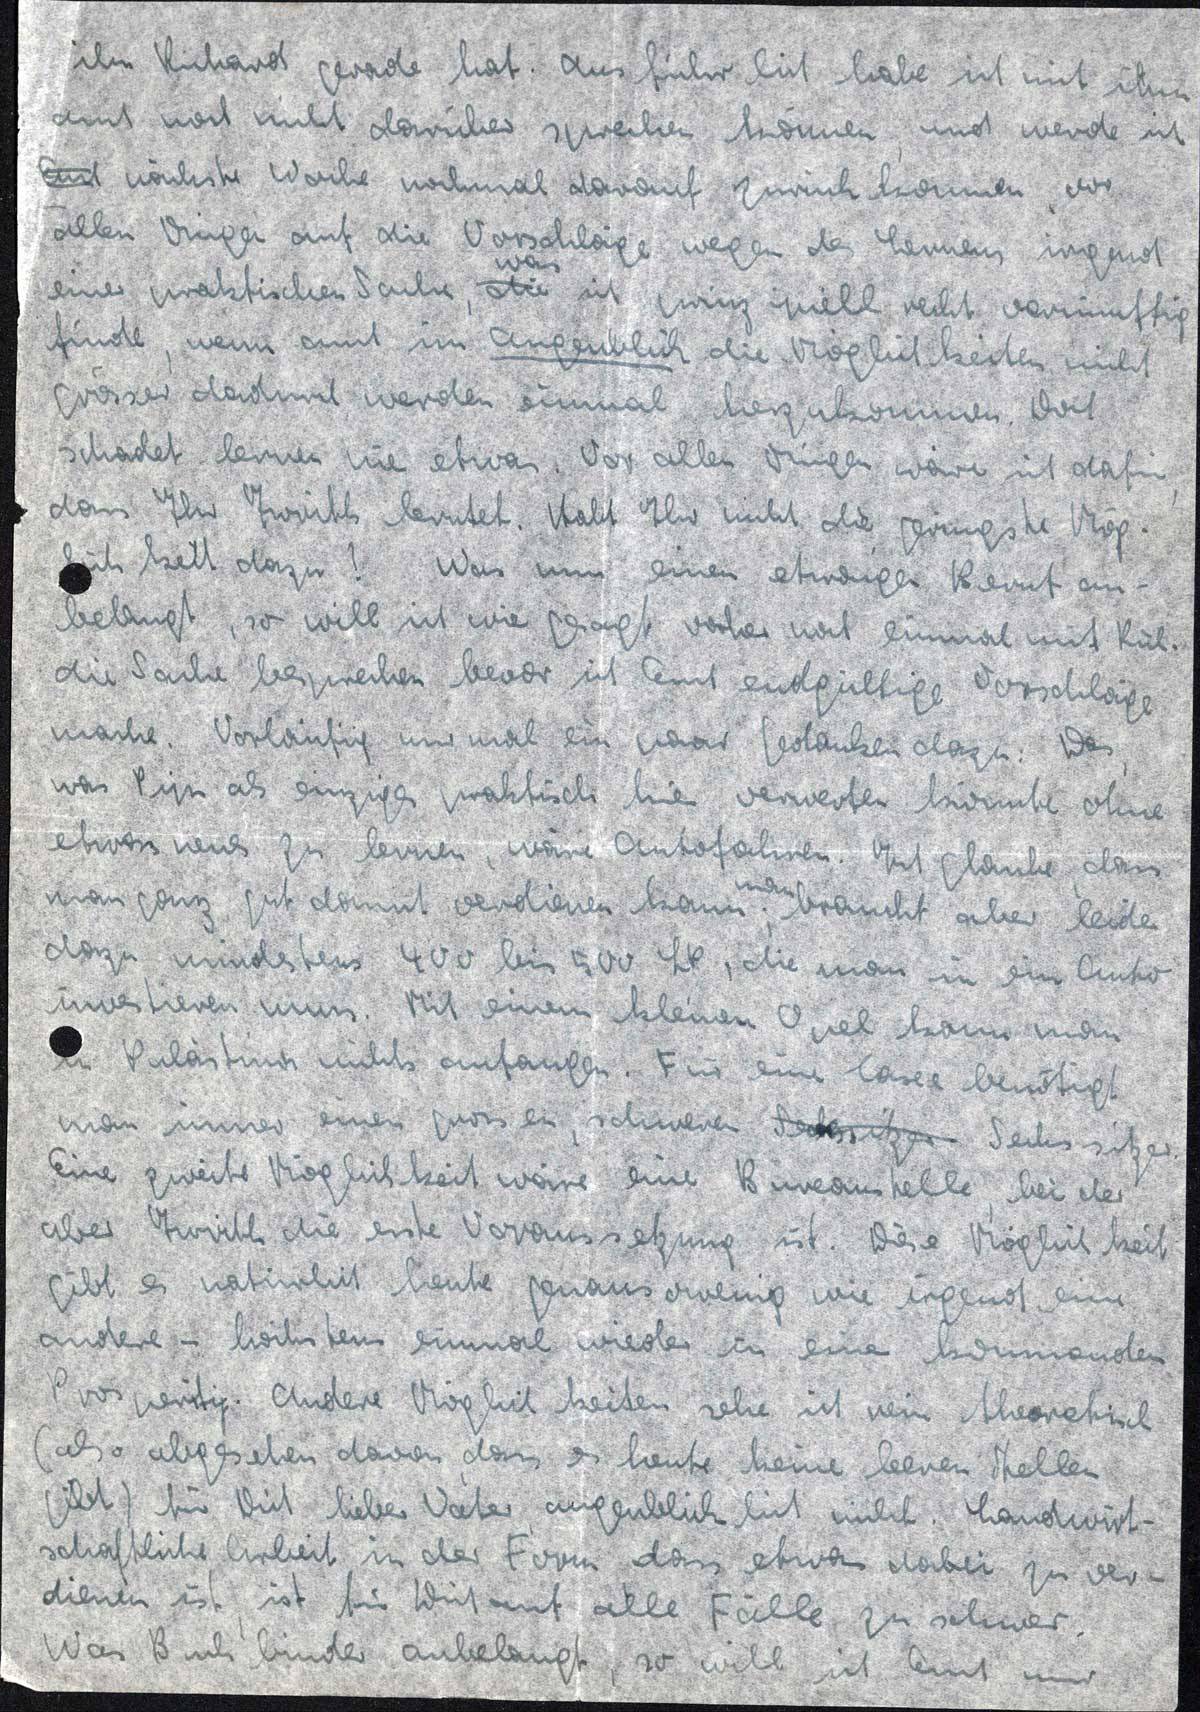 ihm Richard gerade hat. Ausführlich habe ich mit ihm
auch noch nicht darüber sprechen können und werde ich
Euch nächste Woche nochmal darauf zurückkommen, vor
allen Dingen auf die Vorschläge wegen des Lernens irgend
einer praktischen Sache, die was ich prinzipiell recht vernünftig
finde, wenn auch im Augenblick die Möglichkeiten nicht
grösser dadurch werden einmal herzukommen. Doch
schadet lernen nie etwas. Vor allen Dingen wäre ich dafür,
dass Ihr Iwrith lerntet. Habt Ihr nicht die geringste Mög-
lichkeit dazu? Was nun einen etwaigen Beruf an-
belangt, so will ich wie gesagt vorher noch einmal mit Rich.
die Sache besprechen bevor ich Euch endgültige Vorschläge
mache. Vorläufig nur mal ein paar Gedanken dazu: Das,
was Pips als einziges praktisch hier verwerten könnte ohne
etwas neues zu lernen, wäre Autofahren. Ich glaube, dass
man ganz gut damit verdienen kann, man braucht aber leider
dazu mindestens 400 bis 500 LP, die man in ein Auto
investieren muss. Mit einem kleinen Opel kann man
in Palästina nichts anfangen. Für eine Taxe benötigt
man immer einen grossen, schweren Sechssitzer Sechssitzer.
Eine zweite Möglichkeit wäre eine Bureaustelle, bei der
aber Iwrith die erste Voraussetzung ist. Diese Möglichkeit
gibt es natürlich heute genausowenig wie irgend eine
andere – höchstens einmal wieder in einer kommenden
Prosperity. Andere Möglichkeiten sehe ich rein theoretisch
(also abgesehen davon dass es heute keine leeren Stellen
gibt) für Dich lieber Vater, augenblicklich nicht. Landwirt-
schaftliche Arbeit in der Form dass etwas dabei zu ver-
dienen ist, ist für Dich auf alle Fälle zu schwer.
Was Buchbinder anbelangt, so will ich Euch nur